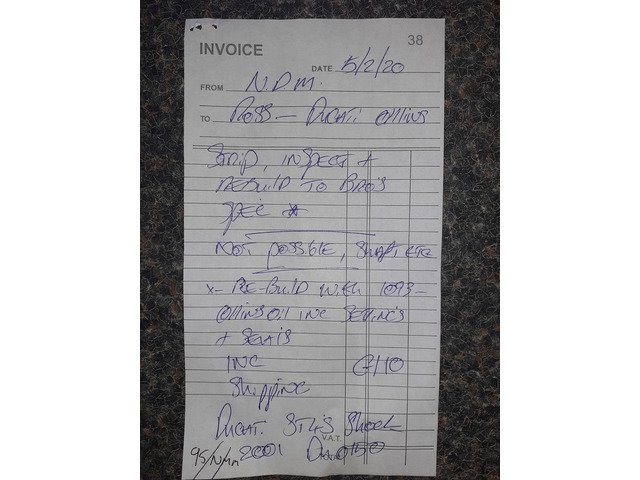 38
INVOICE
DATE 5/2/20
FROM N.D.M.
TO ROSS - DUCATI OHLINS
STRIP, INSPECT +
REBUILD TO BRO'S
SPEC *
NOT POSSIBLE, SHAFT ETC
x- RE-BUILD WITH 1093 -
OHLINS OIL INC SETTINGS
+ SEALS
INC £110
SHIPPING
DUCATI ST4S SHOCK
V.A.T.
95/N/mm 2001